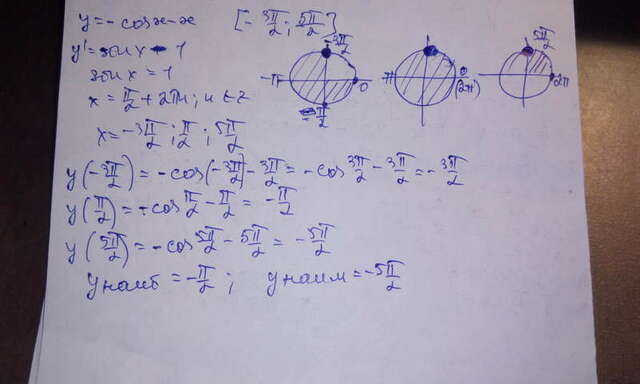 y = - cosx - x [- 3π/2 ; 5π/2]
y' = sin x - 1
sin x = 1
x = π/2 + 2πn; n ∈ z
x = - 3π/2 ; π/2 ; 5π/2
- 3π/2
-π
0
- π/2
π
0
(2π)
5π/2
2π
y(- 3π/2) = -cos(- 3π/2) - 3π/2 = - cos 3π/2 - 3π/2 = - 3π/2
y(π/2) = -cos π/2 - π/2 = - π/2
y(5π/2) = -cos 5π/2 - 5π/2 = - 5π/2
y наиб = - π/2 ; y наим = - 5π/2